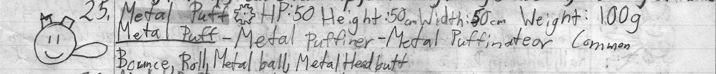 25. Metal Puff HP:50 Height:50cm Width:50cm Weight:100g
Metal Puff-Metal Puffiner-Metal Puffinateor Common
Bounce, Roll, Metal ball, Metal Headbutt